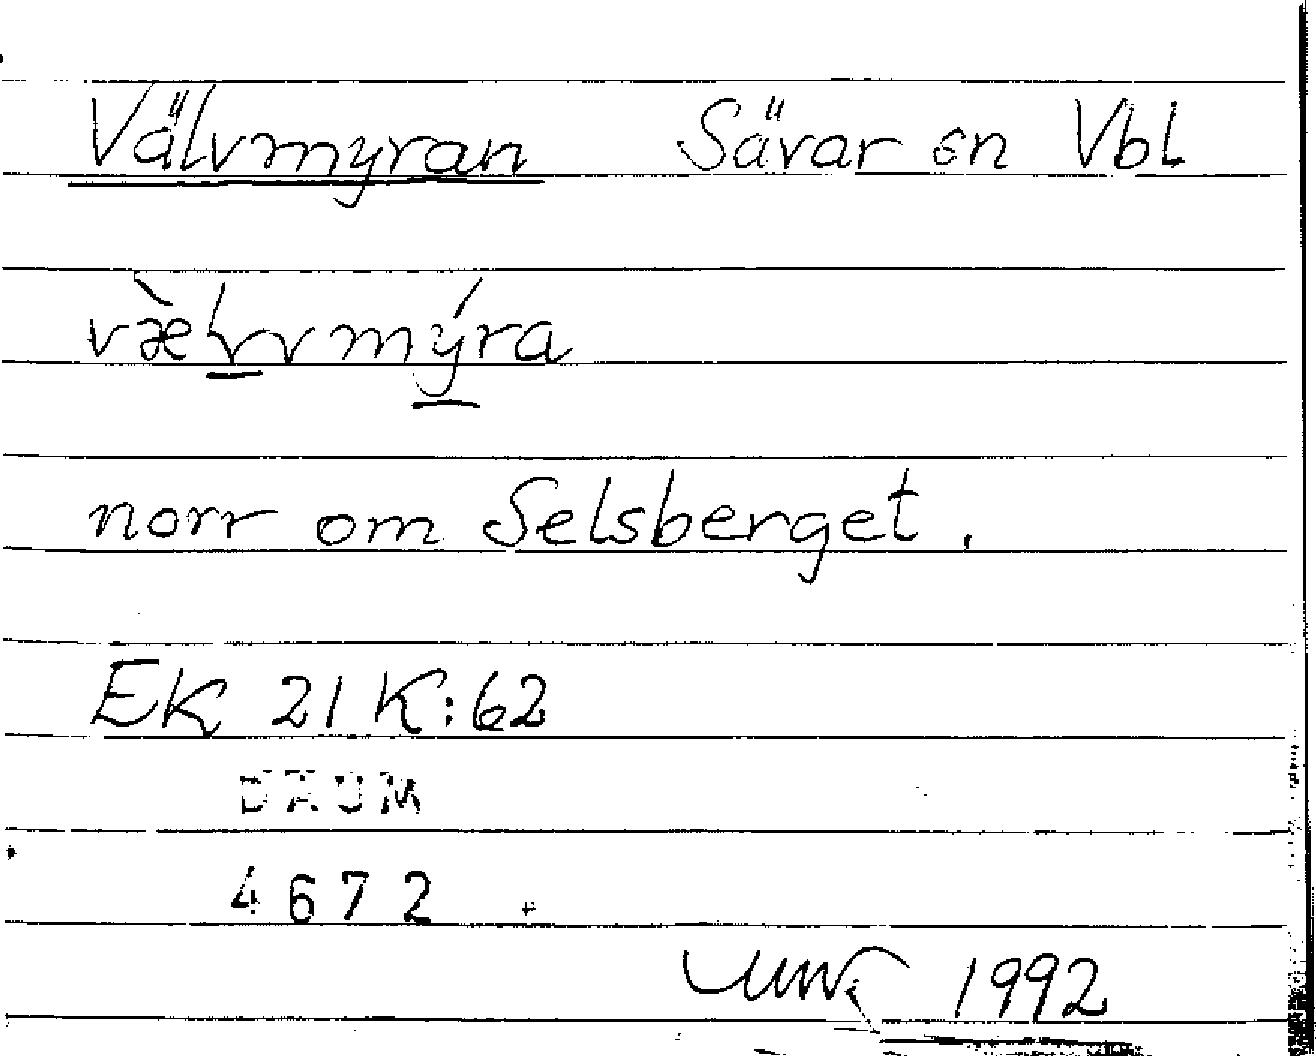 Välvmyran Sävar sn Vbl
norr om Selsberget.
EK 21 K:62
DAUM
4672
1992